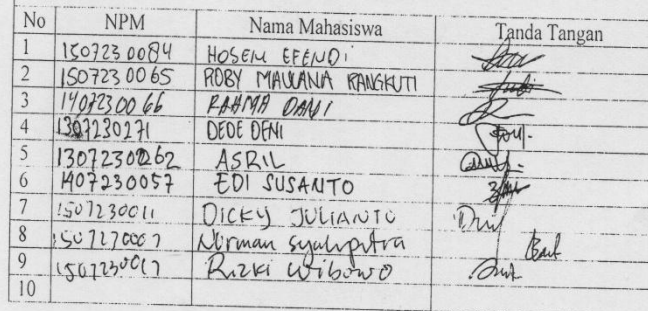 No NPM Nama Mahasiswa Tanda Tangan
1 1507230084 HOSEN EFENDI
2 1507230065 ROBY MAULANA RANGKUTI
3 1407230066 RAHMA DANI
4 1307230271 DEDE DENI
5 1307230262 ASRIL
6 1407230057 EDI SUSANTO
7 1507230011 DICKY JULIANTO
8 Nirman syahputra
9 Rizki wibowo
10